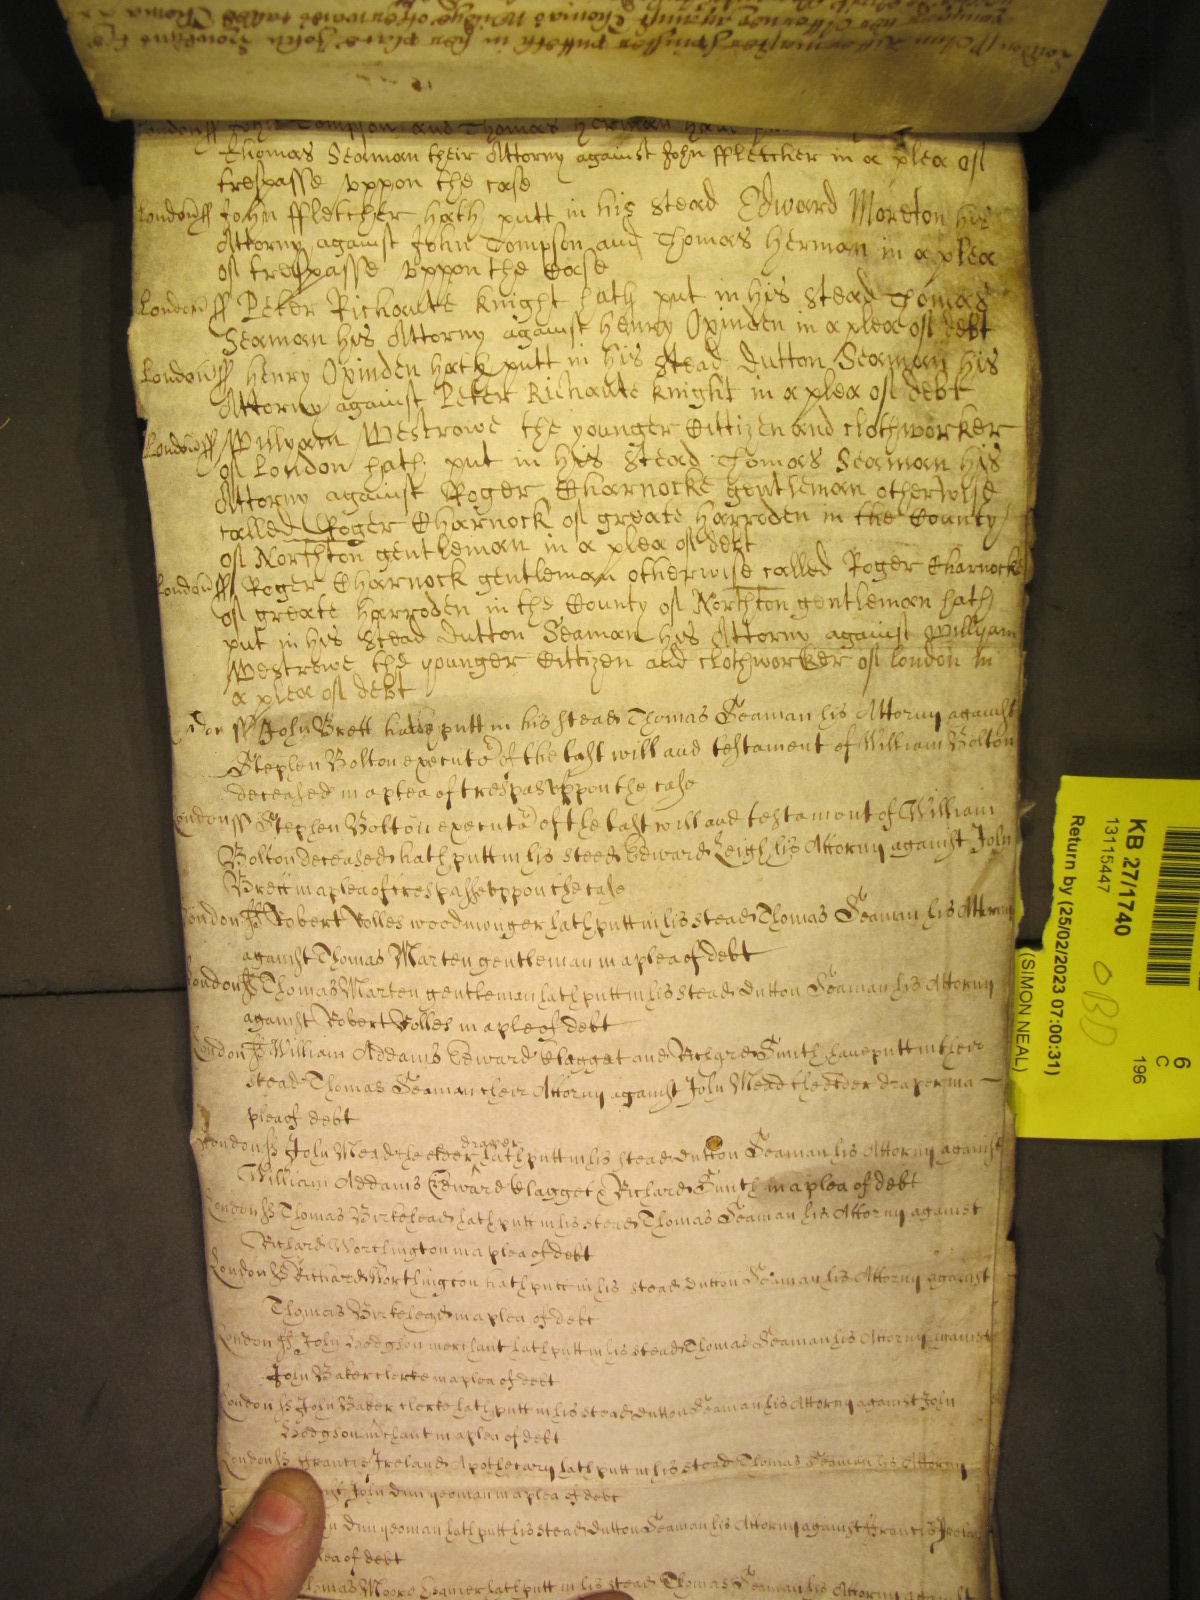 London ss John Tompson and Thomas Herman have
Thomas Seaman their Attorny against John Ffletcher in a plea of
trespasse vppon the case
London ss John Ffletcher hath putt in his stead Edward Moreton his
Attorny against John Tompson and Thomas Herman in a plea
of trespasse vppon the Case
London ss Peter Richaute Knight hath put in his stead Thomas
Seaman his Attorny against Henry Oxinden in a plea of debt
London ss Henry Oxinden hath putt in his stead Dutton Seaman his
Attorny against Peter Richaute Knight in a plea of debt
London ss Willyam Westrowe the younger Cittizen and clothworker
of London hath put in his stead Thomas Seaman his
Attorny against Roger Charnocke gentleman otherwise
called Roger Charnock of greate Harroden in the County
of Northton gentleman in a plea of debt
London ss Roger Charnock gentleman otherwise called Roger Charnocke
of greate Harroden in the County of Northton gentleman hath
put in his stead Dutton Seaman his Attorny against Willyam
Westrowe the younger Cittizen and clothworker of London in
a plea of debt
London ss John Brett hath putt in his stead Thomas Seaman his Attorny against
Stephen Bolton executor of the last will and testament of William Bolton
deceased in a plea of trespas vppon the case
London ss Stephen Bolton executor of the last will and testament of William
Bolton deceased hath putt in his steed Edward Leigh his Attorny against John
Brett in a plea of trespasse vppon the case
London ss Robert Volles woodmonger hath putt in his stead Thomas Seaman his Attorny
against Thomas Marten gentleman in a plea of debt
London ss Thomas Marten gentleman hath putt in his stead Dutton Seaman his Attorny
against Robert Volles in a plea of debt
London ss William Addams Edward Clagget and Richard Smith have putt in their
stead Thomas Seaman their Attorny against John Mead the elder draper in a
plea of debt
London ss John Mead the elder draper hath putt in his stead Dutton Seaman his Attorny against
William Addams Edward Clagget & Richard Smith in a plea of debt
London ss Thomas Birkehead hath putt in his stead Thomas Seaman his Attorny against
Richard Worthington in a plea of debt
London ss Richard Worthington hath putt in his stead Dutton Seaman his Attorny against
Thomas Birkehead in a plea of debt
London ss John Hodgson merchant hath putt in his stead Thomas Seaman his Attorny against
John Baker clerke in a plea of debt
London ss John Baker clerke hath putt in his stead Dutton Seaman his Attorny against John
Hodgson mchant in a plea of debt
London ss Francis Ireland Apothecary hath putt in his stead Thomas Seaman his Attorny
John Dun yeoman in a plea of debt
Dun yeoman hath putt his stead Dutton Seaman his Attorny against Francis Irela
plea of debt
Thomas Moore hath putt in his stead Thomas Seaman his Attorny against
KB 27/1740
13115447
Return by (25/02/2023 07:00:31)
(SIMON NEAL)
OBD
6
C
196